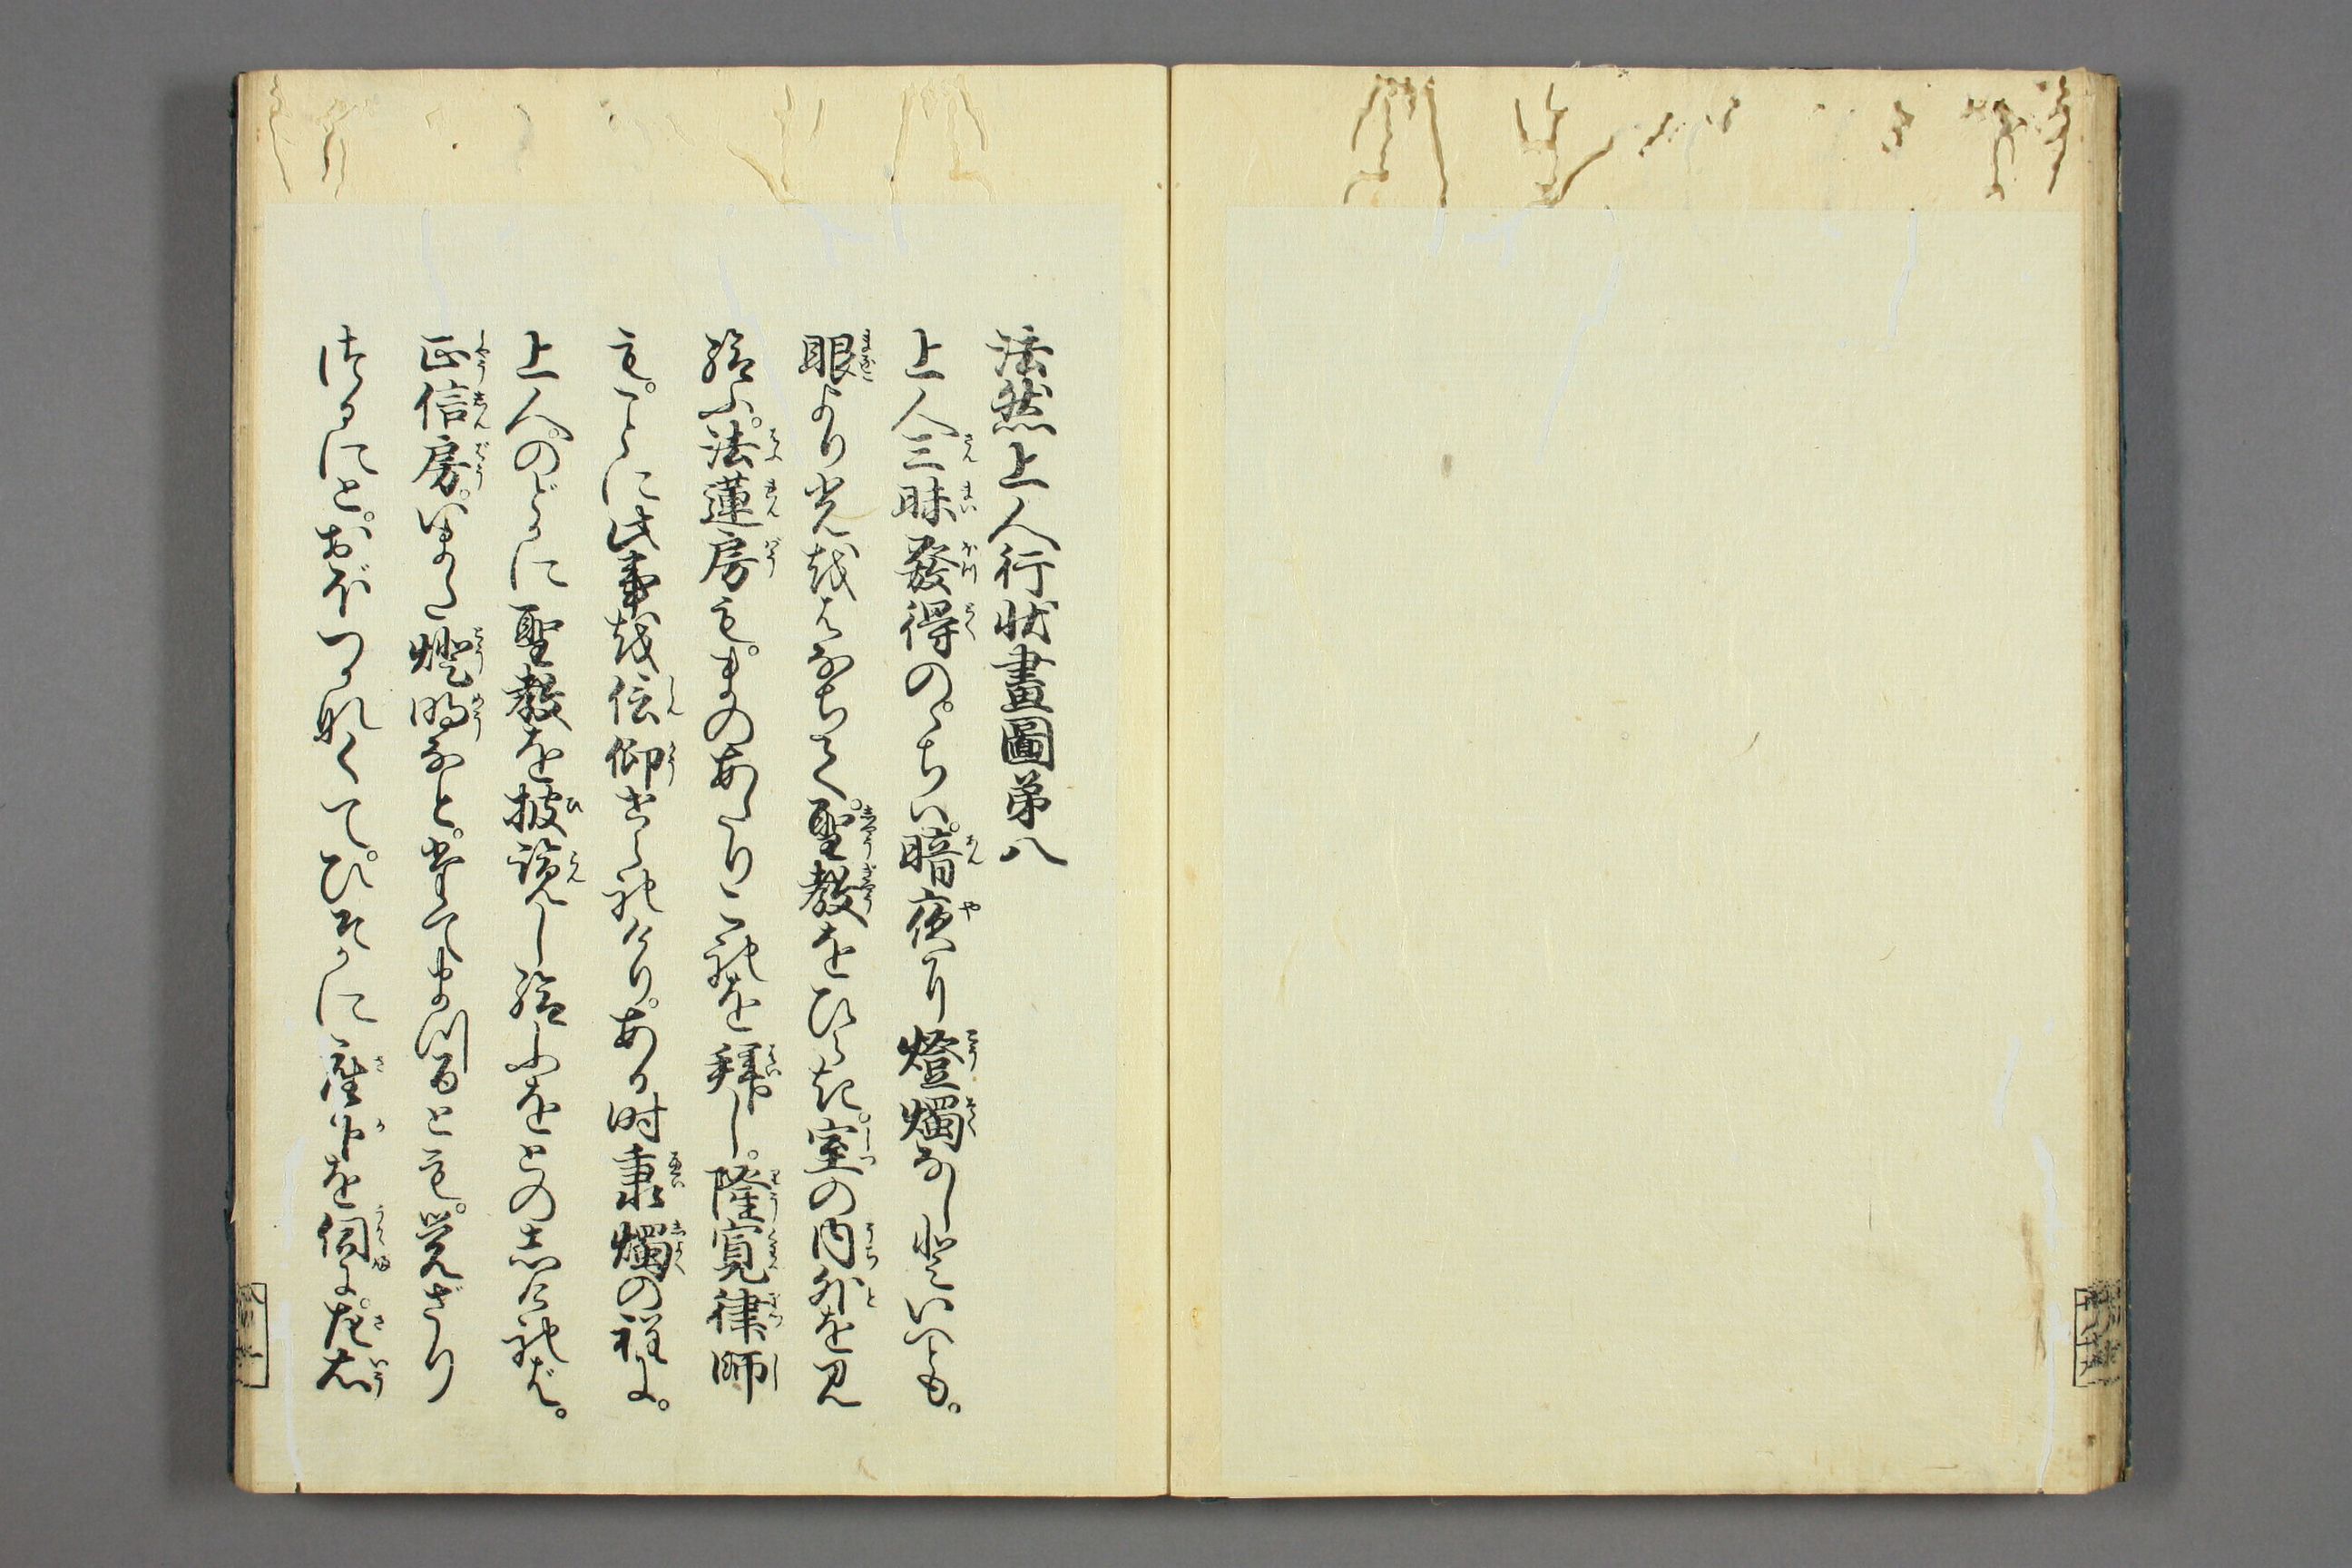 法然上人行状畫圖第八
上人三昧發得のゝちハ。暗夜に燈燭なしといへども。
眼より光をはなちて。聖教をひらき。室の内外を見
給ふ。法蓮房も。まのあたりこれを拜し。隆寛律師
も。ことに此事を信仰せられけり。ある時秉燭の程に。
上人。のどかに聖教を披覧し給ふをとのしければ。
正信房。いまた燈明なと。
にと。おぼつかなくて。ひそかに座下を伺に。左右